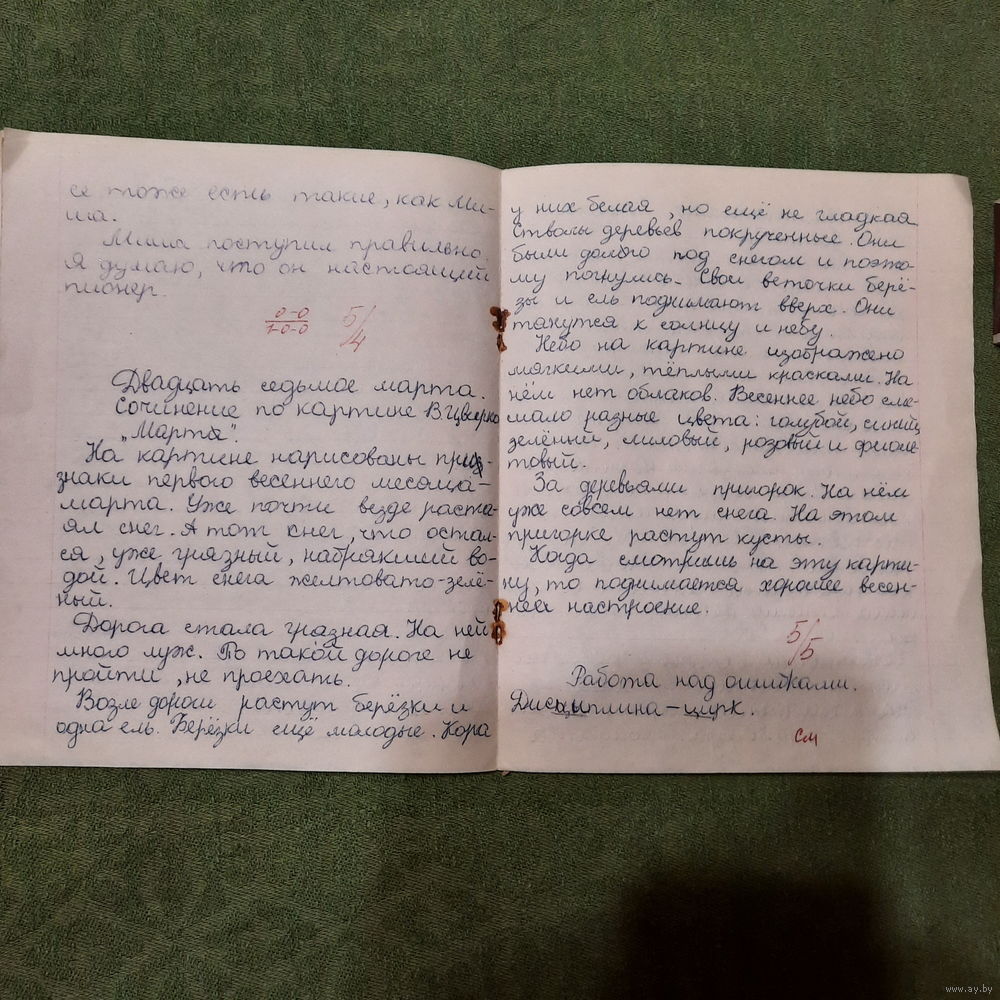 се тоже есть такие, как Ми-
ша.
Миша поступил правильно.
Я думаю, что он настоящий
пионер.
0-0
1-0-0
5/4
Двадцать седьмое марта.
Сочинение по картине В Цвирко
„Марты".
На картине нарисованы приз-
знаки первого весеннего месяца-
марта. Уже почти везде раста-
ял снег. А тот снег, что остал-
ся, уже грязный, набрякший во-
дой. Цвет снега желтовато-зелё-
ный.
Дорога стала грязная. На ней
много луж. По такой дороге не
пройти, не проехать.
Возле дороги растут берёзки и
одна ель. Берёзки ещё молодые. Кора
у них белая, но ещё не гладкая
Стволы деревьев покрученные. Они
были долго под снегом и поэто-
му погнулись. Свои веточки берё-
зы и ель поднимают вверх. Они
тянутся к солнцу и небу.
Небо на картине изображено
мягкими, тёплыми красками. На
нём нет облаков. Весеннее небо
мало разные цвета: голубой, синий,
зелёный, лиловый, розовый и фиоле
товый.
За деревьями пригорок. На нём
уже совсем нет снега. На этом
пригорке растут кусты.
Когда смотришь на эту карти-
ну, то поднимается хорошее весен-
нее настроение.
5/5
Работа над ошибками.
Дисциплина - цирк.
См
www.ay.by